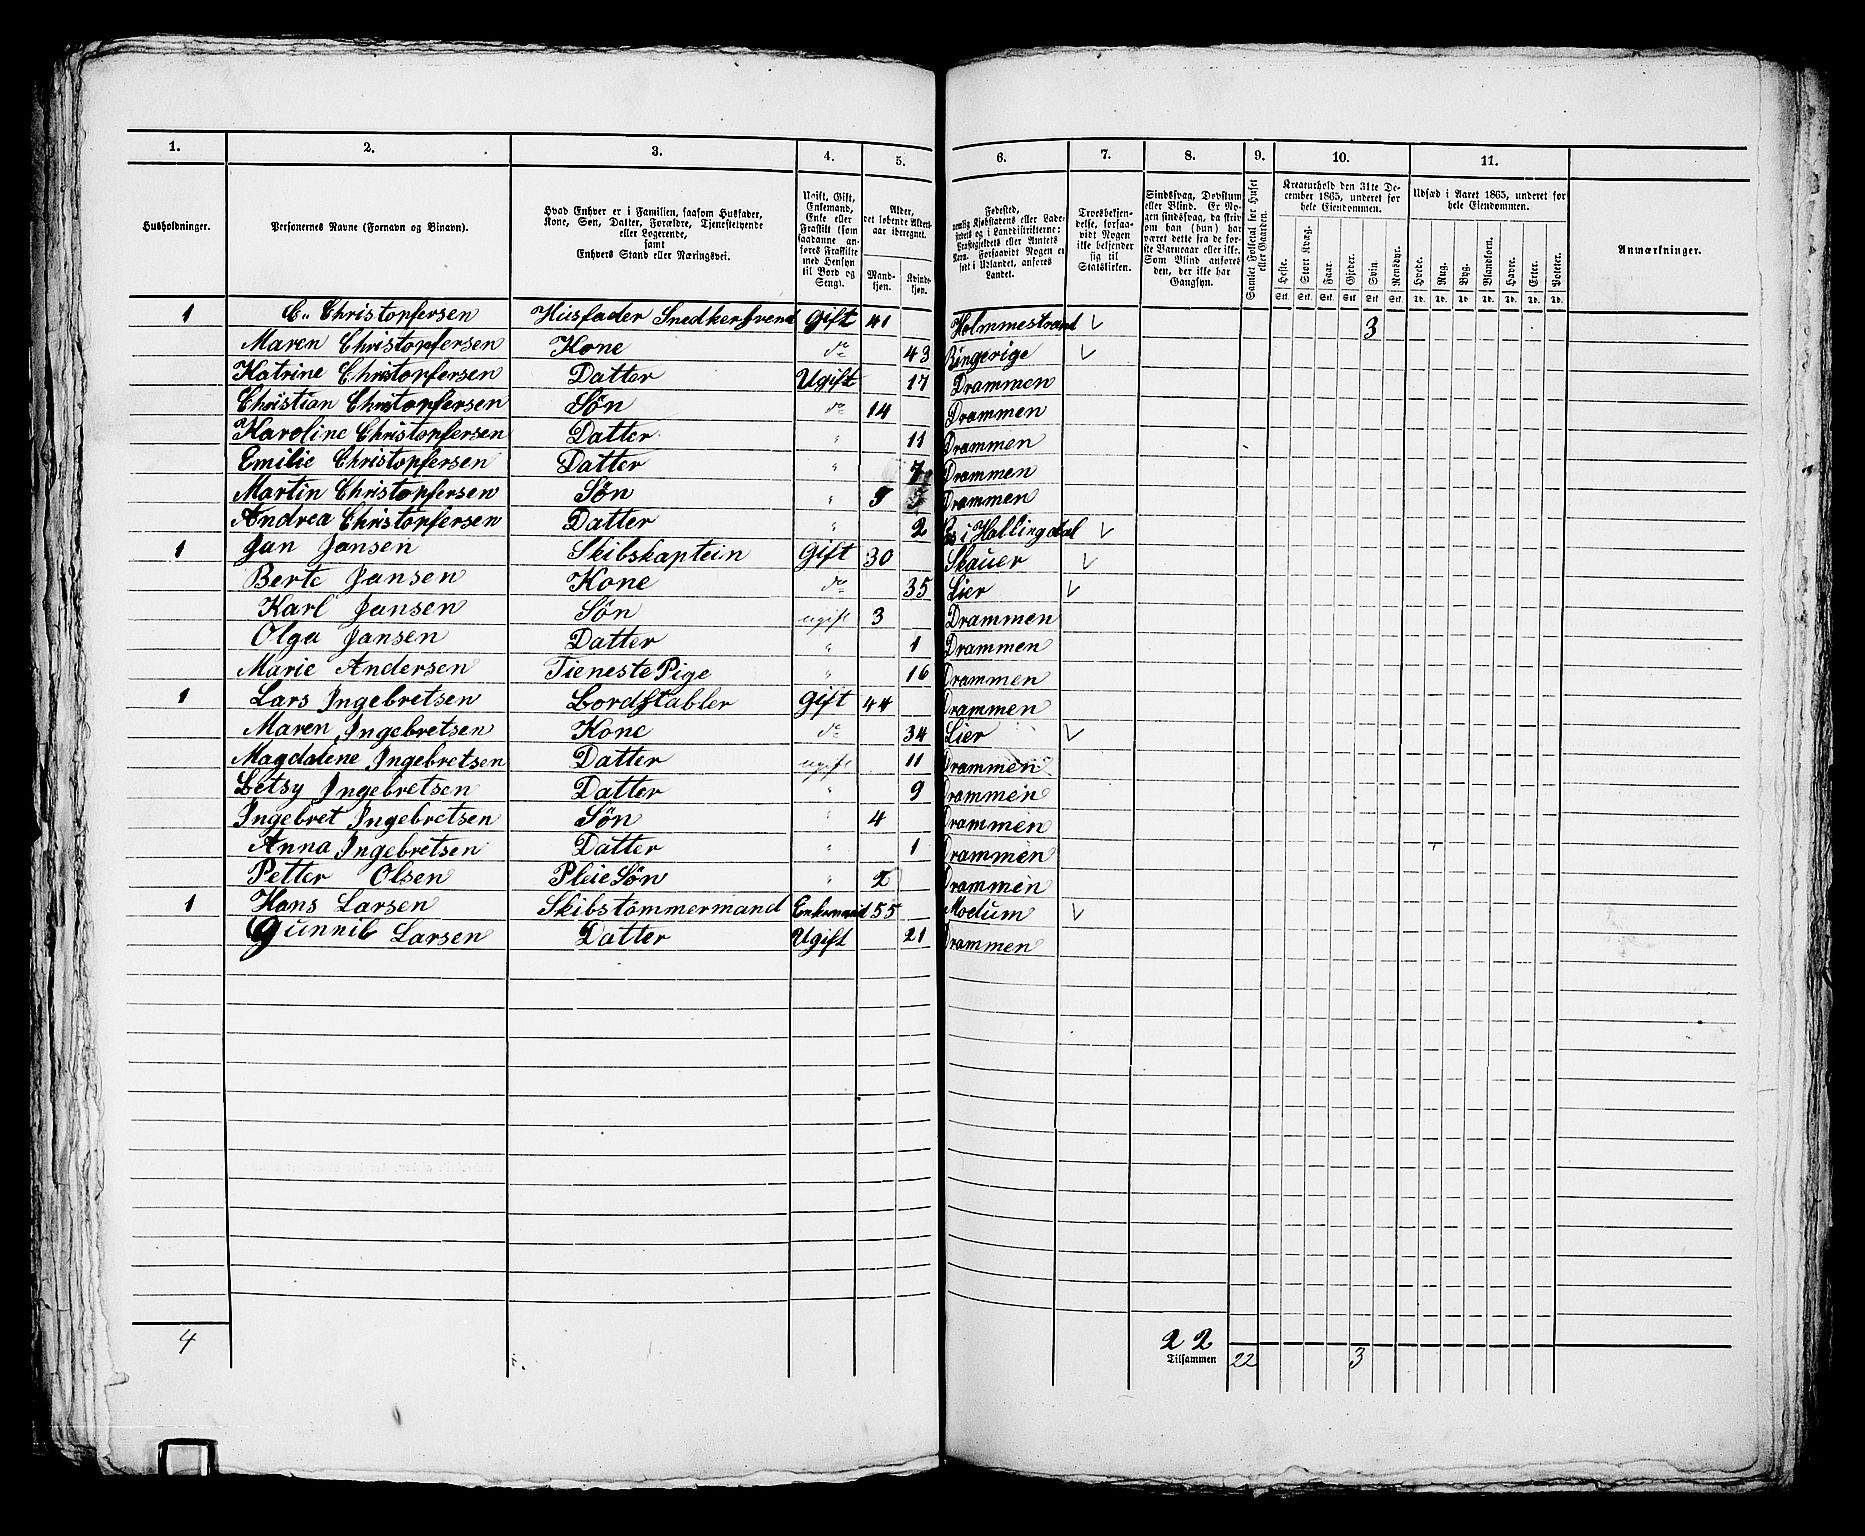 1. 2. 3. 4. 5. 6. 7. 8. 9. 10. 11.
Husholdninger. Personernes Navne (Fornavn og Binavn). Hvad Enhver er i Familien, saasom Husfader, Kone, Søn, Datter, Forældre, Tjenestetyende eller Logerende, samt Enhvers Stand eller Næringsvei. Ugift, Gift, Enkemand, Enke eller Fraskilt (som saadanne anføres Fraskilte med Hensyn til Bord og Seng). Alder, det løbende Aldersaar iberegnet. Mandkjøn. Kvindekjøn. Fødested, nemlig Kjøbstadens eller Ladestedets og i Landdistrikterne: Præstegjeldets eller Amtets Navn. Forsaavidt Nogen er født i Udlandet, anføres Landet. Troesbekjendelse, forsaavidt Nogen ikke bekjender sig til Statskirken. Sindssvag, Døvstum eller Blind. Er Nogen sindssvag, da skriv om han (hun) har været dette fra de første Barneaar eller ikke. Som Blind anføres den, der ikke har Gangsyn. Samlet Folketal for Huset eller Gaarden. Kreaturhold den 31te December 1865, underet for hele Eiendommen. Heste. Stort Kvæg. Faar. Gjeder. Svin. Rensdyr. Udsæd i Aaret 1865, underet for hele Eiendommen. Hvede. Rug. Byg. Blandkorn. Havre. Erter. Poteter. Anmærkninger.
Stk. Stk. Stk. Stk. Stk. Stk. Td. Td. Td. Td. Td. Td. Td.
1 C. Christopfersen Husfader Snedkersvend Gift 41 Holmmestrand 3
Maren Christopfersen Kone do 43 Ringerige
Katrine Christopfersen Datter Ugift 17 Drammen
Christian Christopfersen Søn do 14 Drammen
Karoline Christopfersen Datter " 11 Drammen
Emilie Christopfersen Datter " 7 Drammen
Martin Christopfersen Søn " 5 Drammen
Andrea Christopfersen Datter " 2 i Hallingdal
1 Jan Jansen Skibskaptein Gift 30 Skauer
Berte Jansen Kone do 35 Lier
Karl Jansen Søn ugift 3 Drammen
Olga Jansen Datter " 1 Drammen
Marie Andersen Tieneste Pige " 16 Drammen
1 Lars Ingebretsen Bordstabler Gift 44 Drammen
Maren Ingebretsen Kone do 34 Lier
Magdalene Ingebretsen Datter ugift 11 Drammen
Betsy Ingebretsen Datter " 9 Drammen
Ingebret Ingebretsen Søn " 4 Drammen
Anna Ingebretsen Datter " 1 Drammen
Petter Olsen Pleie Søn " 2 Drammen
1 Hans Larsen Skibstømmermand Enkemand 55 Modum
Gunnil Larsen Datter Ugift 21 Drammen
4 22
Tilsammen 22 3